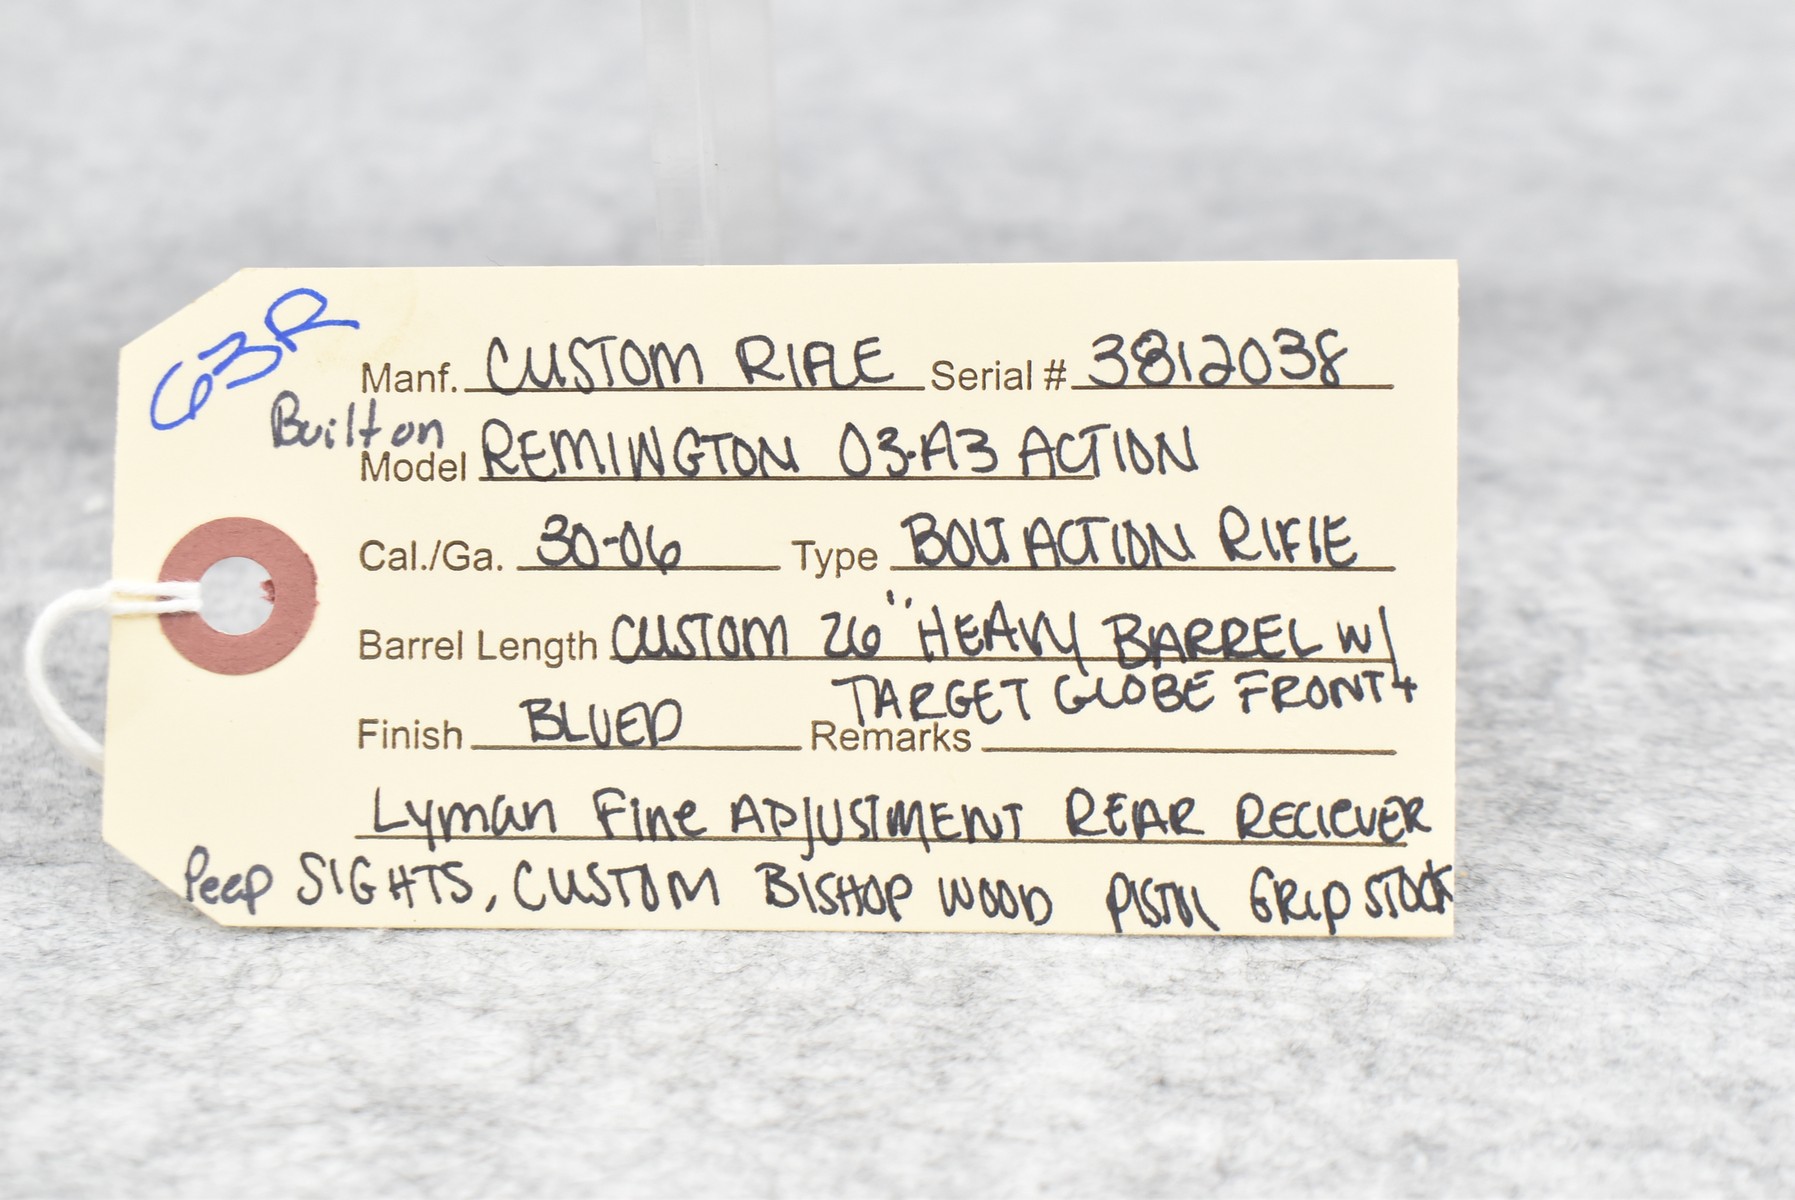 63R
Manf. CUSTOM RIFLE Serial # 3812038
Built on
Model REMINGTON 03-A3 ACTION
Cal./Ga. 30-06 Type BOLT ACTION RIFLE
Barrel Length CUSTOM 26" HEAVY BARREL W/
TARGET GLOBE FRONT +
Finish BLUED Remarks
Lyman Fine ADJUSTMENT REAR RECIEVER
Peep SIGHTS, CUSTOM BISHOP WOOD PISTOL GRIP STOCK